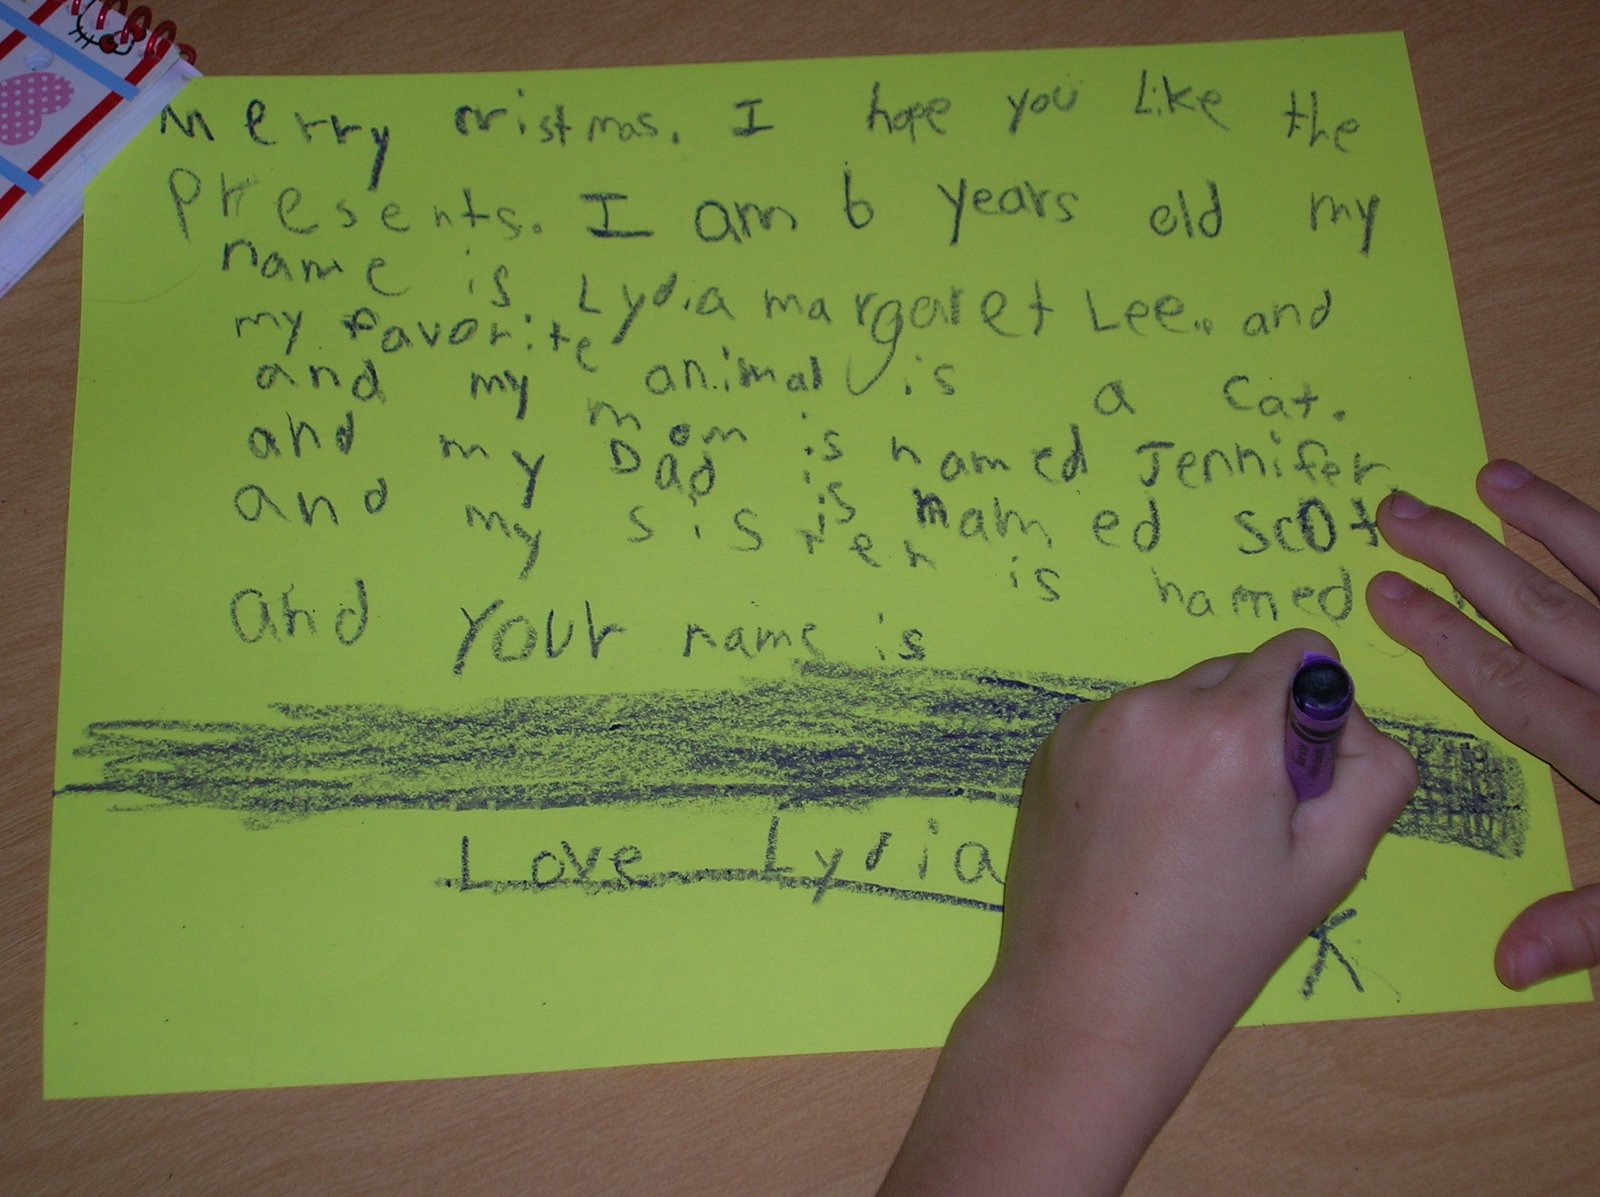 Merry cristmas. I hope you Like the
Presents. I am 6 years old my
name is Lydia margaret Lee.. and
my favorite animal is a cat.
and my mom is named Jennifer.
and my Dad is named Scot
and my sister is named
and your name is
Love Lydia
K